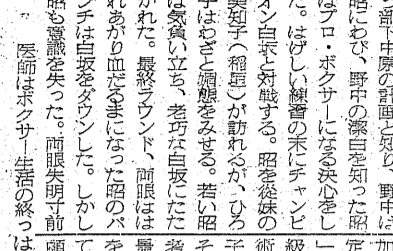 部下中原の計画と知り、野中は
昭にわび、野中の潔白を知った昭
はプロ・ボクサーになる決心をし
た。はげしい練習の末にチャンピ
オン白坂と対戦する。昭を従妹の
美知子（稲垣）が訪れるが、ひろ
子はわざと媚態をみせる。若い昭
は気負い立ち、老巧な白坂にたた
かれた。最終ラウンド、両眼は
れあがり血だるまになった昭のパ
ンチは白坂をダウンした。しかし
昭も意識を失った。両眼失明寸前
医師はボクサー生活の終っ
加
定
「
級
術
子
そ
者
最
を
て